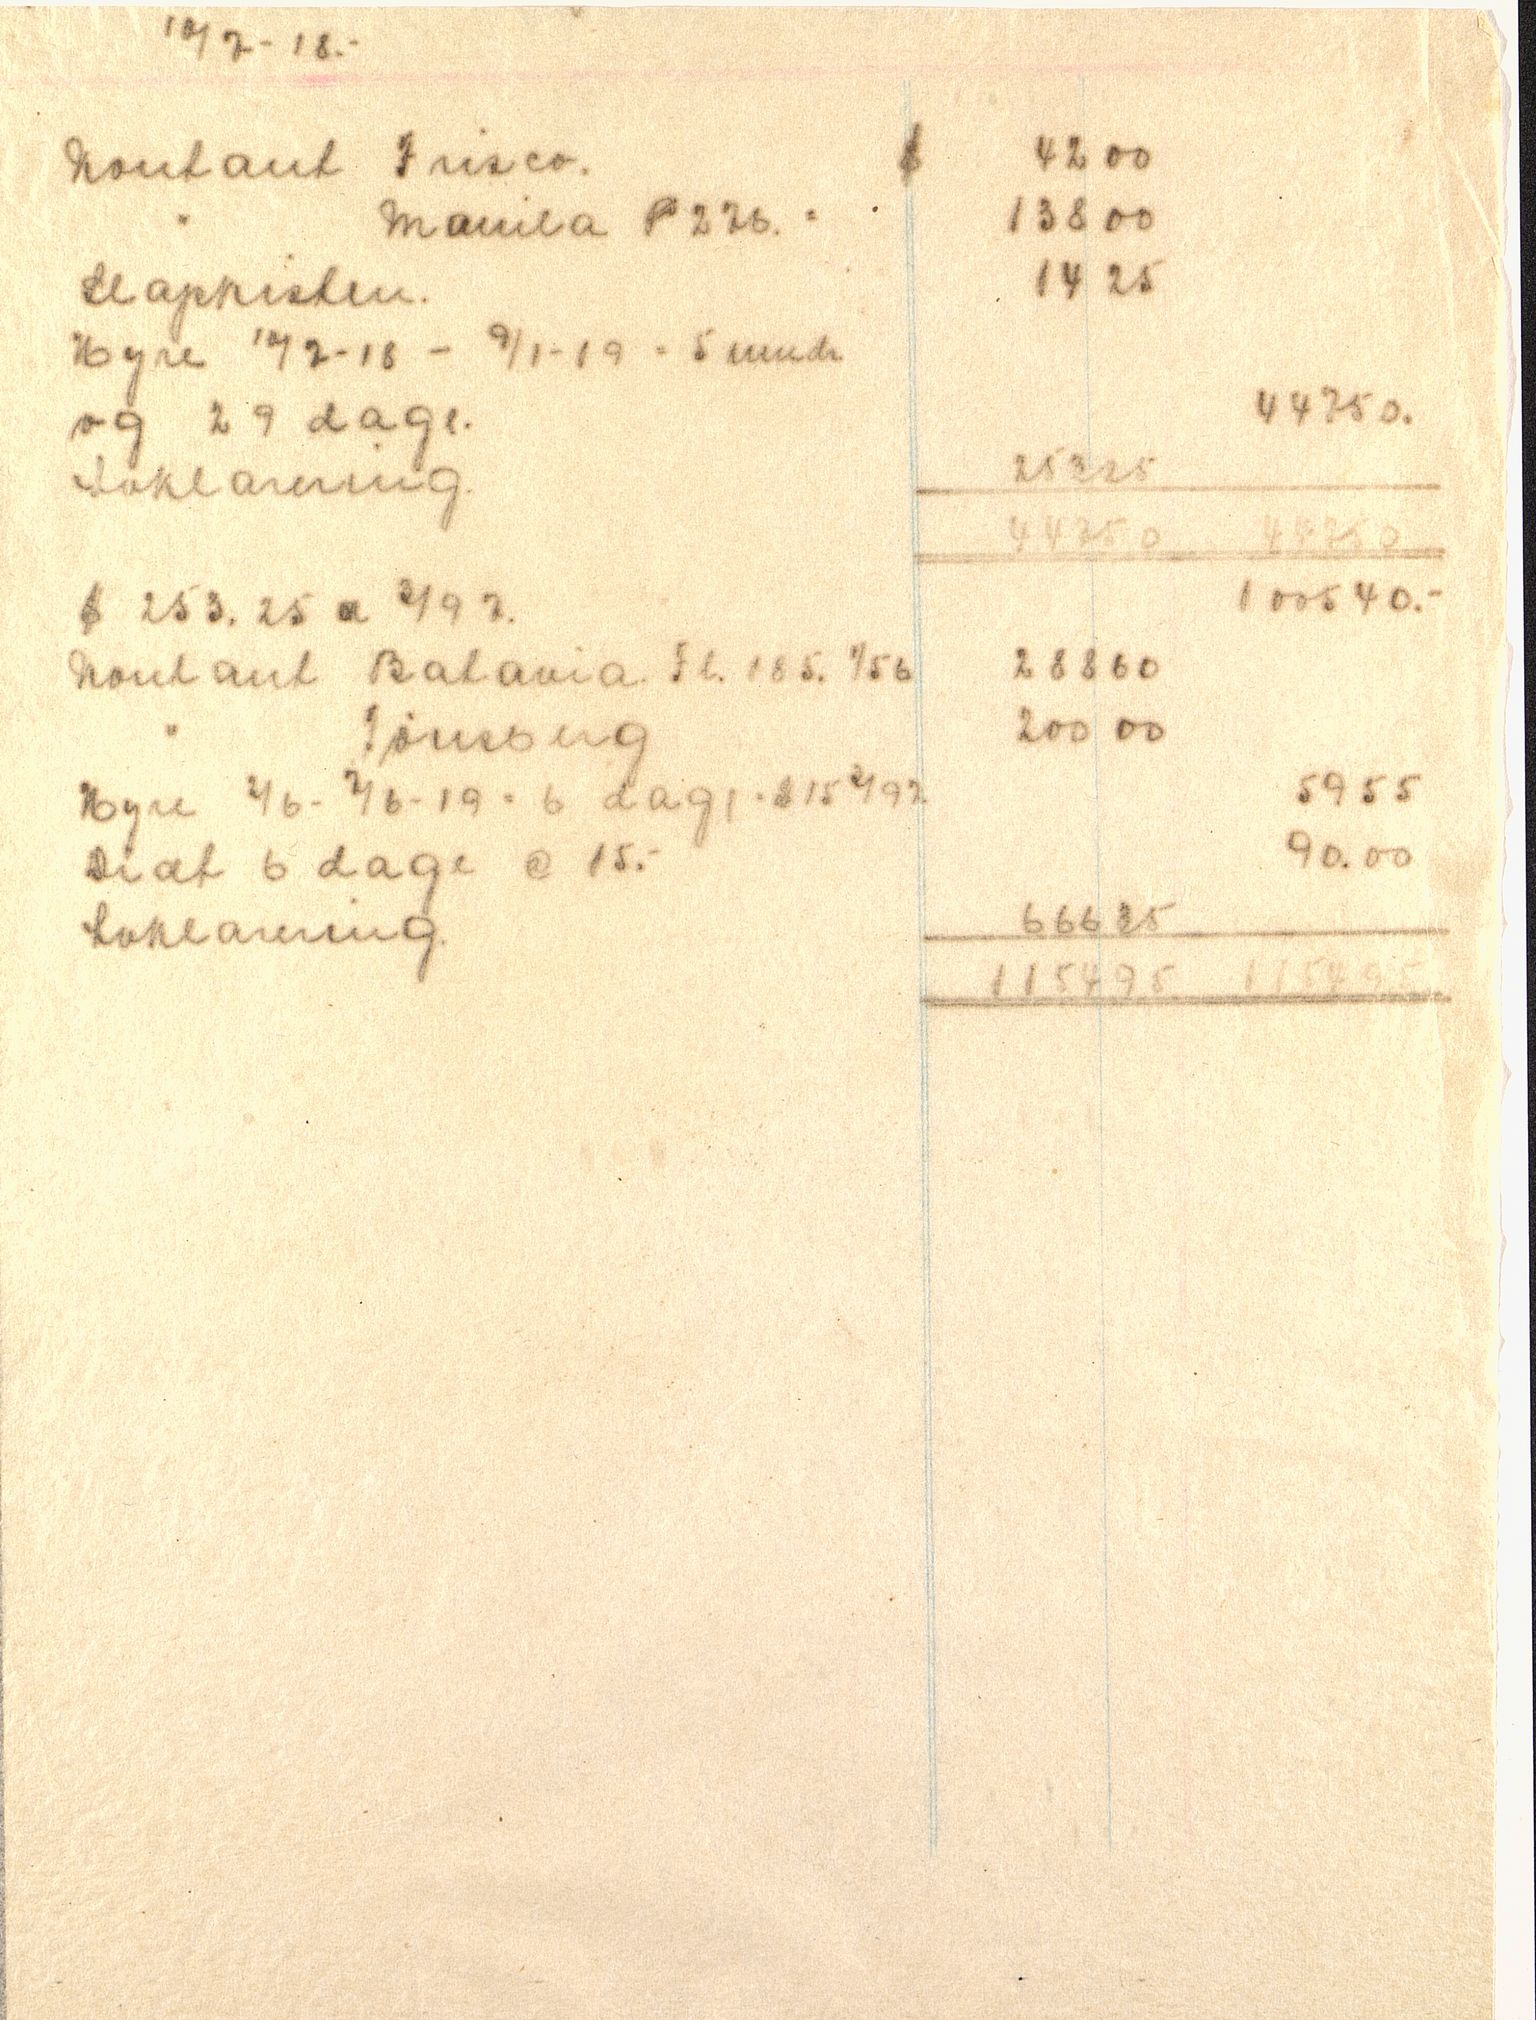 10/7-18.-
Kontant Frisco. $ 4200
" Manila P 276.- 13800
Slapkisten. 1425
Hyre 10/7-18 - 9/1-19 = 5 mndr
og 29 dage. 44750.
Avklarering. 25325
44750 44750
$ 253.25 a 3/97. 100540.-
Kontant Batavia Fl. 185. 1/56 28860
" Tønsberg 20000
Hyre 2/6- 7/6-19 = 6 dage = $15 3/97 5955
Diæt 6 dage @ 15.- 90.00
Avklarering. 66635
115495 115495